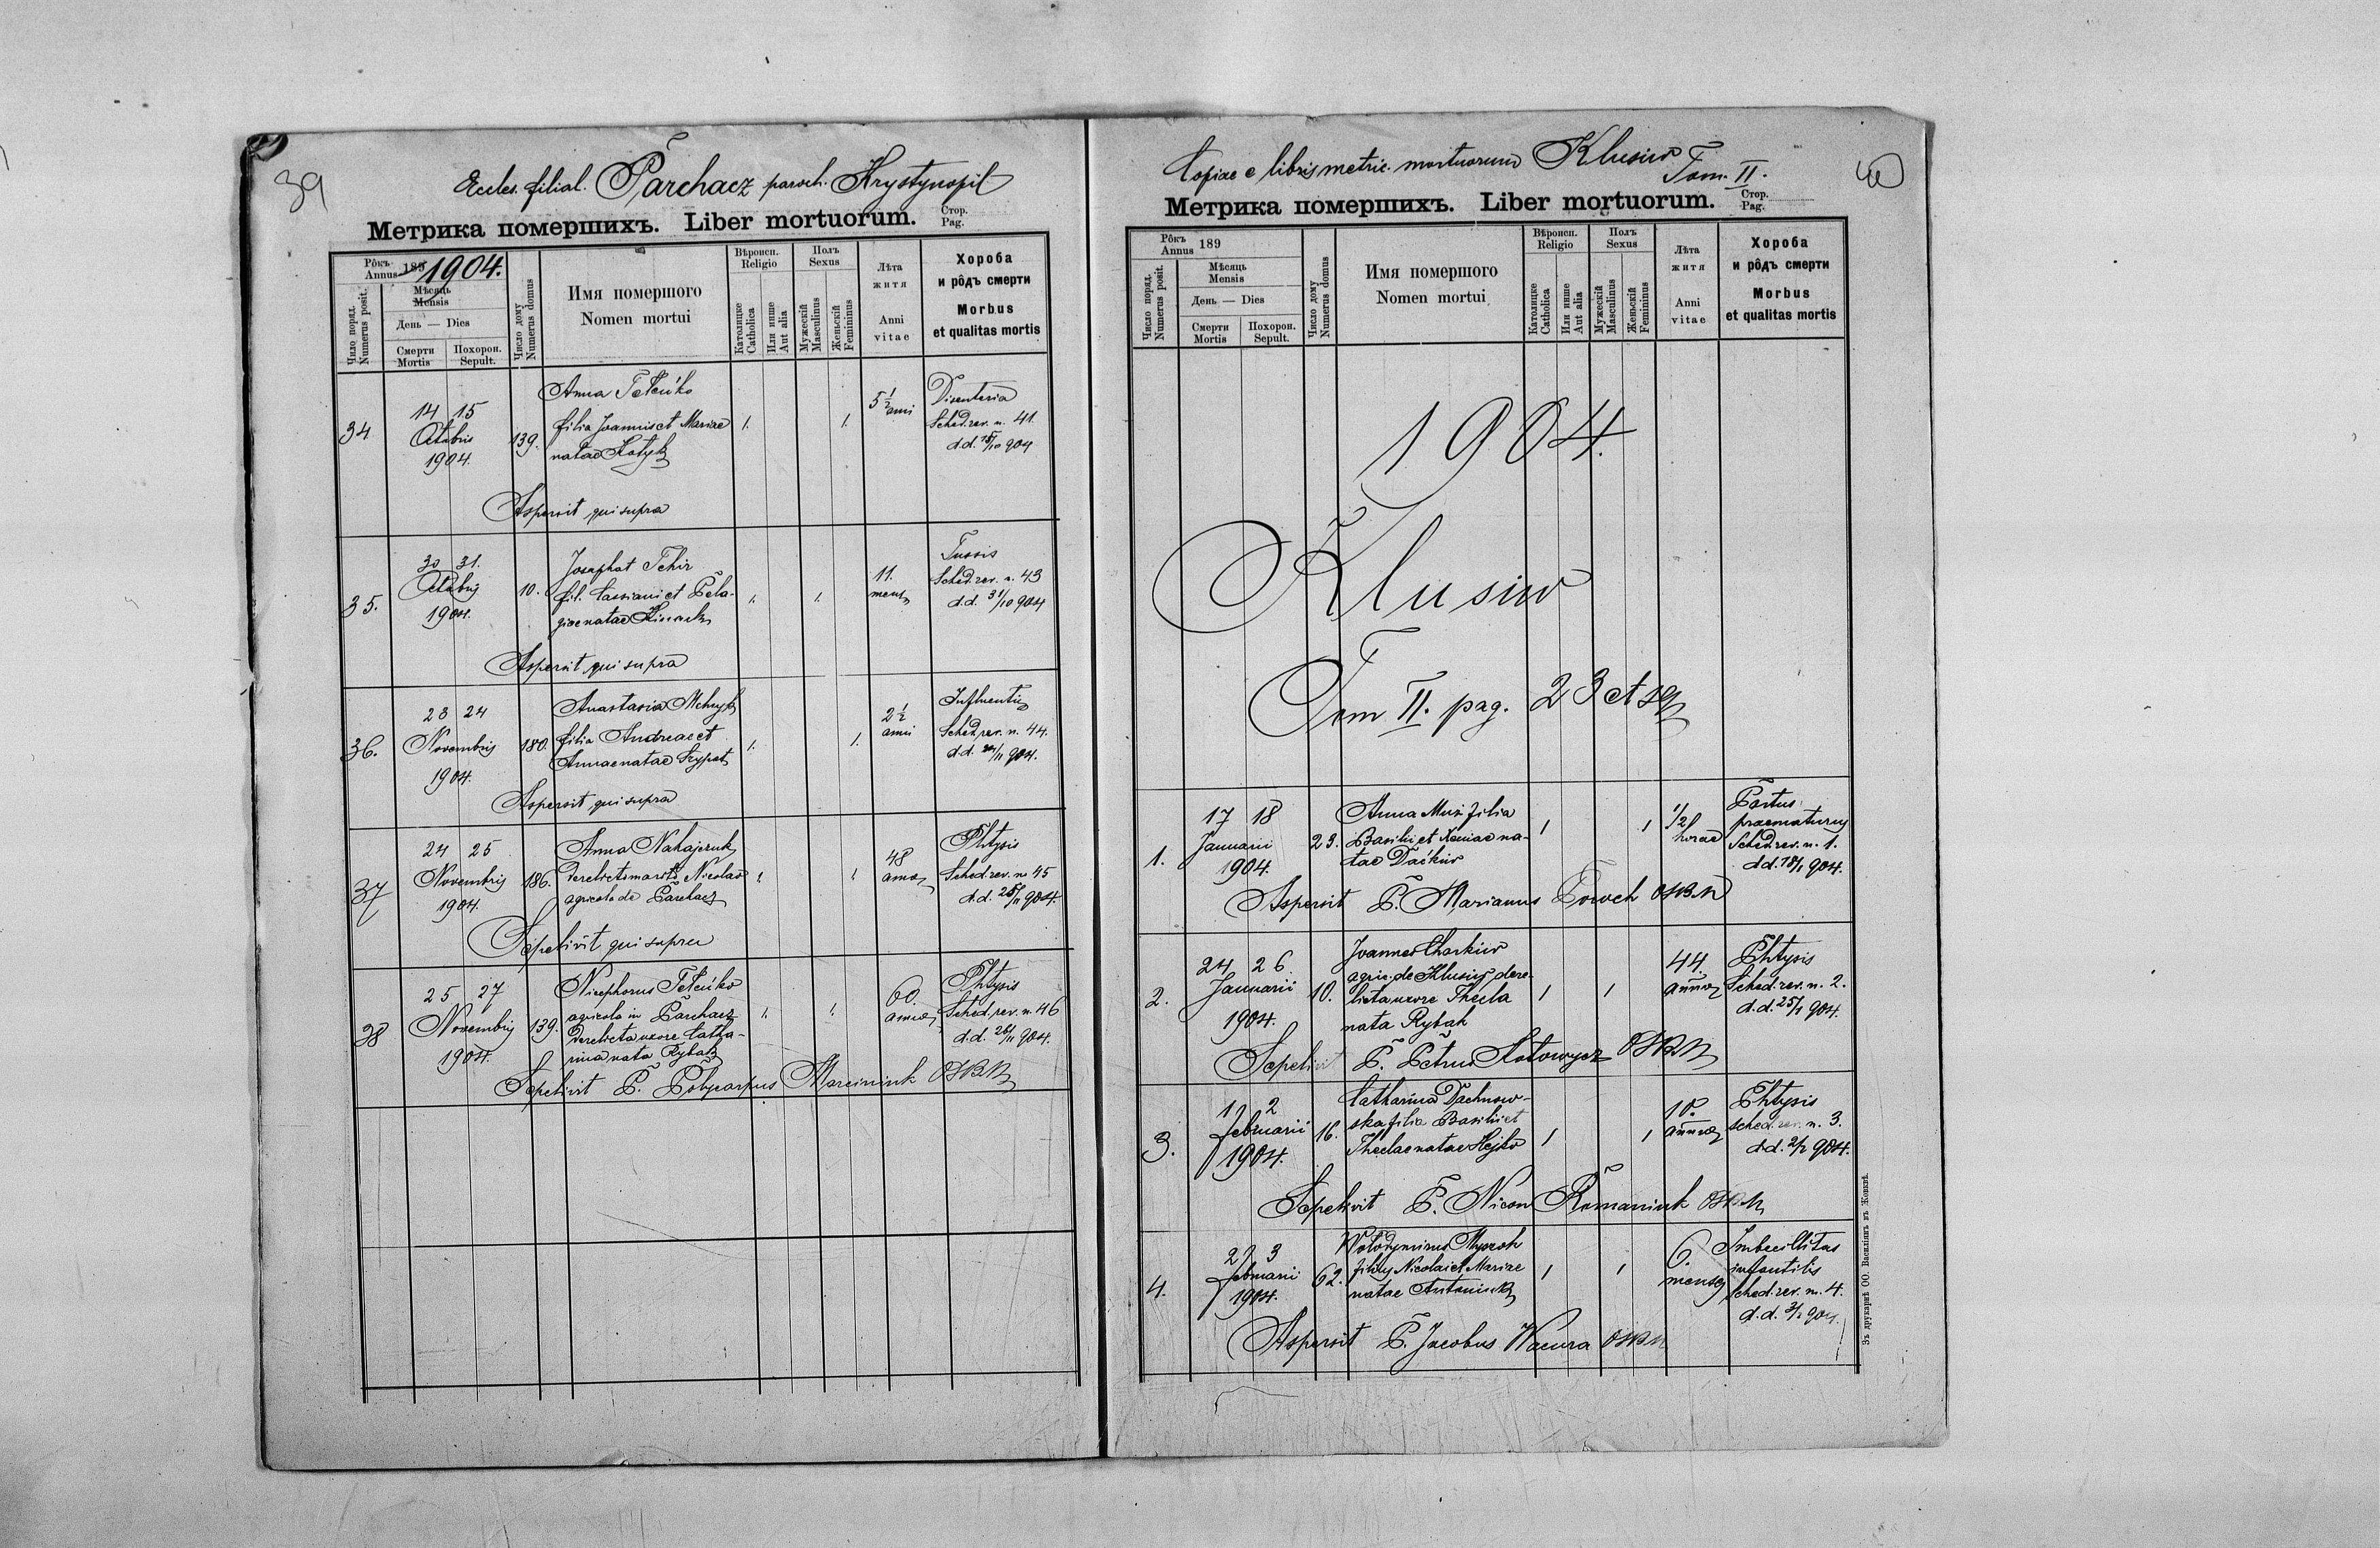 39
Eccles. filial. Parchacz paroch. Krystynopil
Метрика помершихъ. Liber mortuorum. Стор. Pag.
Рôкъ Annus 189 1904.
Мѣсяць Mensis
День — Dies
Смерти Mortis
Похорон. Sepult.
Число поряд. Numerus posit.
Число дому Numerus domus
Имя помершого
Nomen mortui
Вѣроисп. Religio
Католицке Catholica
Или инше Aut alia
Полъ Sexus
Мужескій Masculinus
Женьскій Femininus
Лѣта житя
Anni vitae
Хороба
и рôдъ смерти
Morbus
et qualitas mortis
34 14 15 Octobris 1904. 139.
Anna Teteńko
filia Joannis et Mariae
natae Kotyk
1. 1. 5 1/2 anni
Disenteria
Sched. rev. n. 41.
d.d. 15/10 904
Aspersit qui supra
35. 30 31. Octobris 1904. 10.
Josaphat Tchir
fil. Cassiani et Pela-
giae natae
1. 1. 11. mens
Tussis
Sched. rev. n. 43
d.d. 31/10 904
Aspersit qui supra
36. 23 24 Novembris 1904. 180.
Anastasia Melnyk
filia Andreae et
Annae natae Szypot
1. 1. 2 1/2 anni
Influentia
Sched. rev. n. 44.
d.d. 24/11 904.
Aspersit qui supra
37 24 25 Novembris 1904. 186.
Anna Nahajczuk
derelicto marito Nicolao
agricola de Parchacz
1. 1. 48 annos
Phtysis
Sched. rev. n. 45
d.d. 25/11 904.
Sepelivit qui supra
38 25 27 Novembris 1904. 139.
Nicephorus Teteńko
agricola in Parchacz
derelicta uxore Catha-
rina nata Rybak
1. 1. 60. annos
Phtysis
Sched. rev. n. 46
d.d. 26/11 904.
Sepelivit P. Polycarpus Marciniuk OSBM
40
Copiae e libris metric. mortuorum Klusiw Tom. II.
Метрика помершихъ. Liber mortuorum. Стор. Pag.
Рôкъ Annus 189
Мѣсяць Mensis
День — Dies
Смерти Mortis
Похорон. Sepult.
Число поряд. Numerus posit.
Число дому Numerus domus
Имя помершого
Nomen mortui
Вѣроисп. Religio
Католицке Catholica
Или инше Aut alia
Полъ Sexus
Мужескій Masculinus
Женьскій Femininus
Лѣта житя
Anni vitae
Хороба
и рôдъ смерти
Morbus
et qualitas mortis
1904.
Klusiw
Tom II. pag. 23 et sq
1. 17 18 Januarii 1904. 23.
Anna Muż filia
Basilii et Xeniae na-
tae Daćkiw
1 1 1/2 horae
Partus
praematurus
Sched. rev. n. 1.
d.d. 18/1 904.
Aspersit P. Marianus Poroch OSBM
2. 24 26. Januarii 1904. 10.
Joannes Charkiw
agric. de Klusiw dere-
licta uxore Thecla
nata Rybak
1 1 44. annos
Phtysis
Sched. rev. n. 2.
d.d. 25/1 904.
Sepelivit P. Petrus Kotowycz OSBM
3. 1 2 februarii 1904. 16.
Catharina Dachnow-
ska filia Basilii et
Theclae natae Hejko
1 1 10. annos
Phtysis
sched. rev. n. 3.
d.d. 2/2 904.
Sepelivit P. Nicon Romaniuk OSBM
4. 2 3 februarii 1904. 62.
Wolodymirus Myszoh
filius Nicolai et Mariae
natae Antoniuk
1 1 6. menses
Imbecillitas
infantilis
sched. rev. n. 4.
d.d. 3/2 904.
Aspersit P. Jacobus Wacura OSBM
Зъ друкарнѣ ОО. Василіянъ въ Жовквѣ.